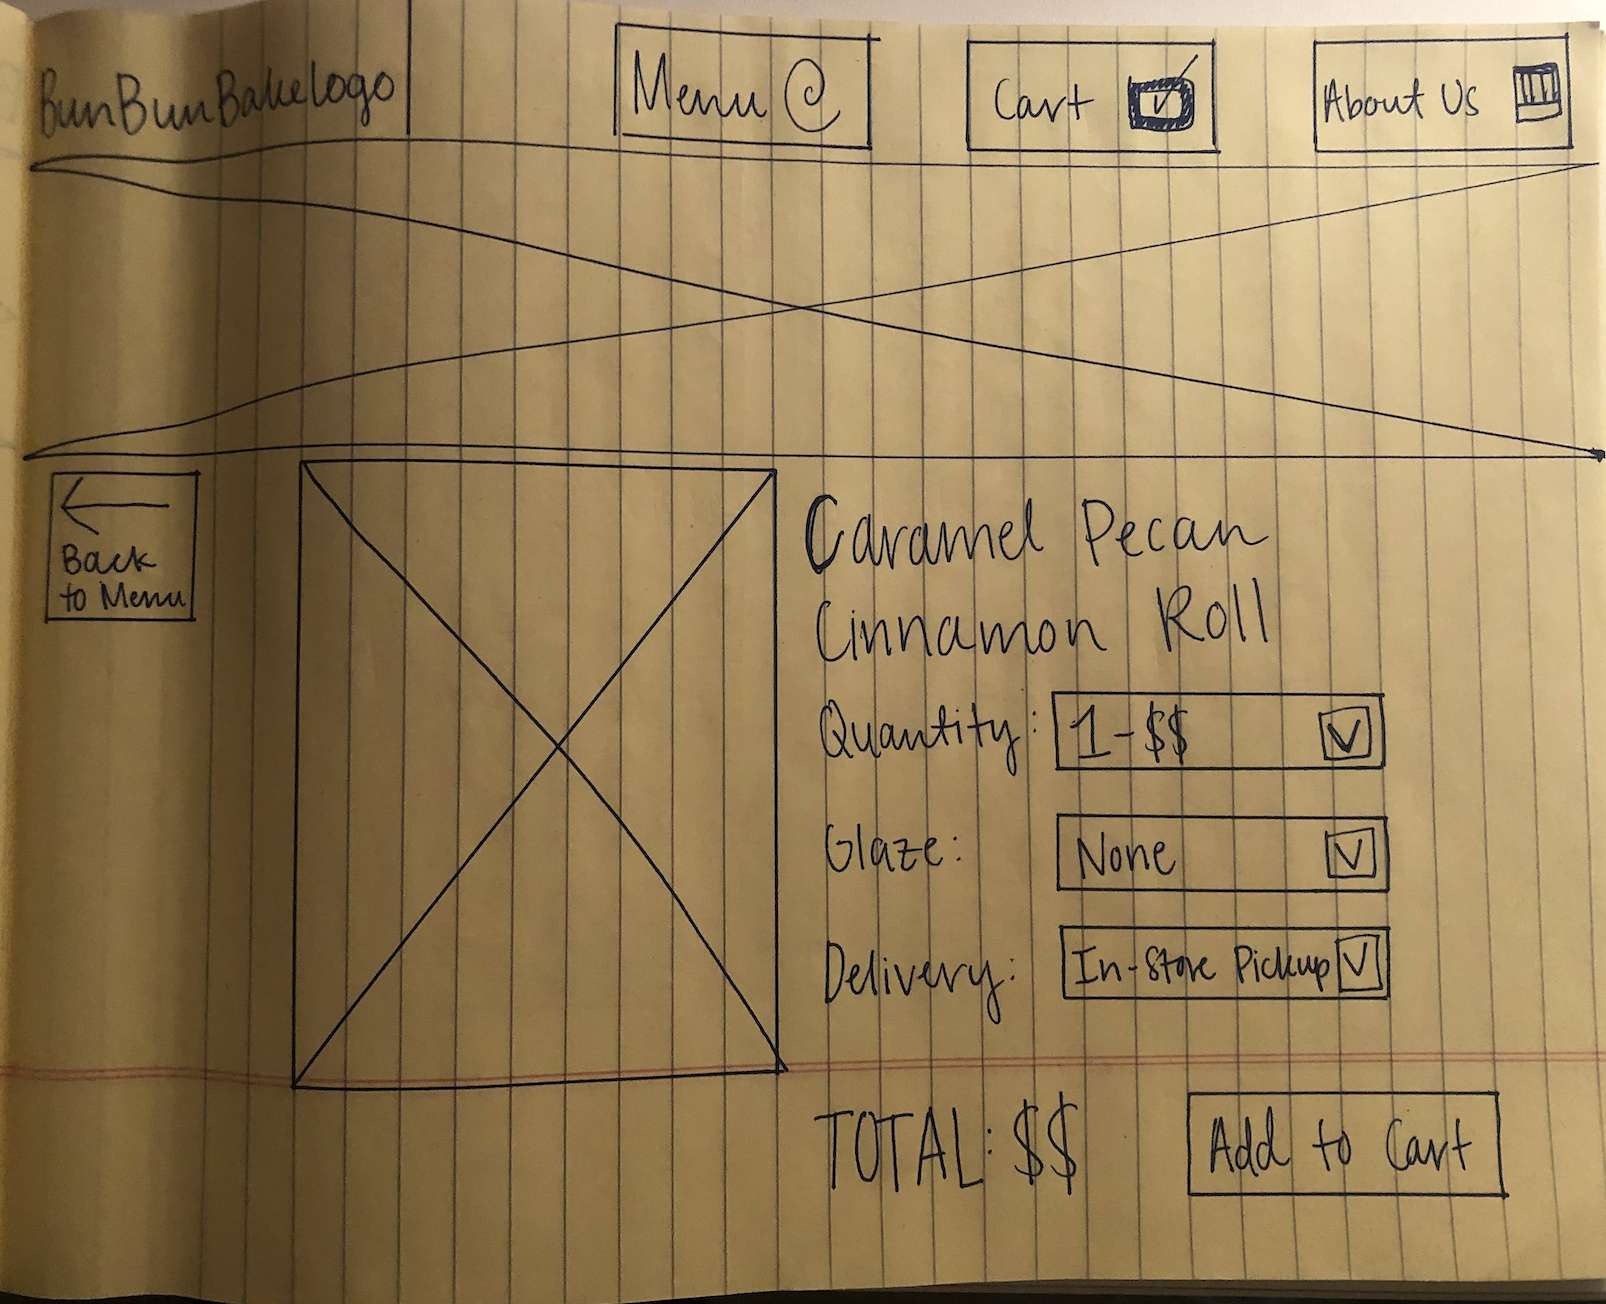 BunBunBake logo
Menu
Cart
About Us
Back
to Menu
Caramel Pecan
Cinnamon Roll
Quantity: 1-$$
Glaze: None
Delivery: In-Store Pickup
TOTAL: $$
Add to Cart